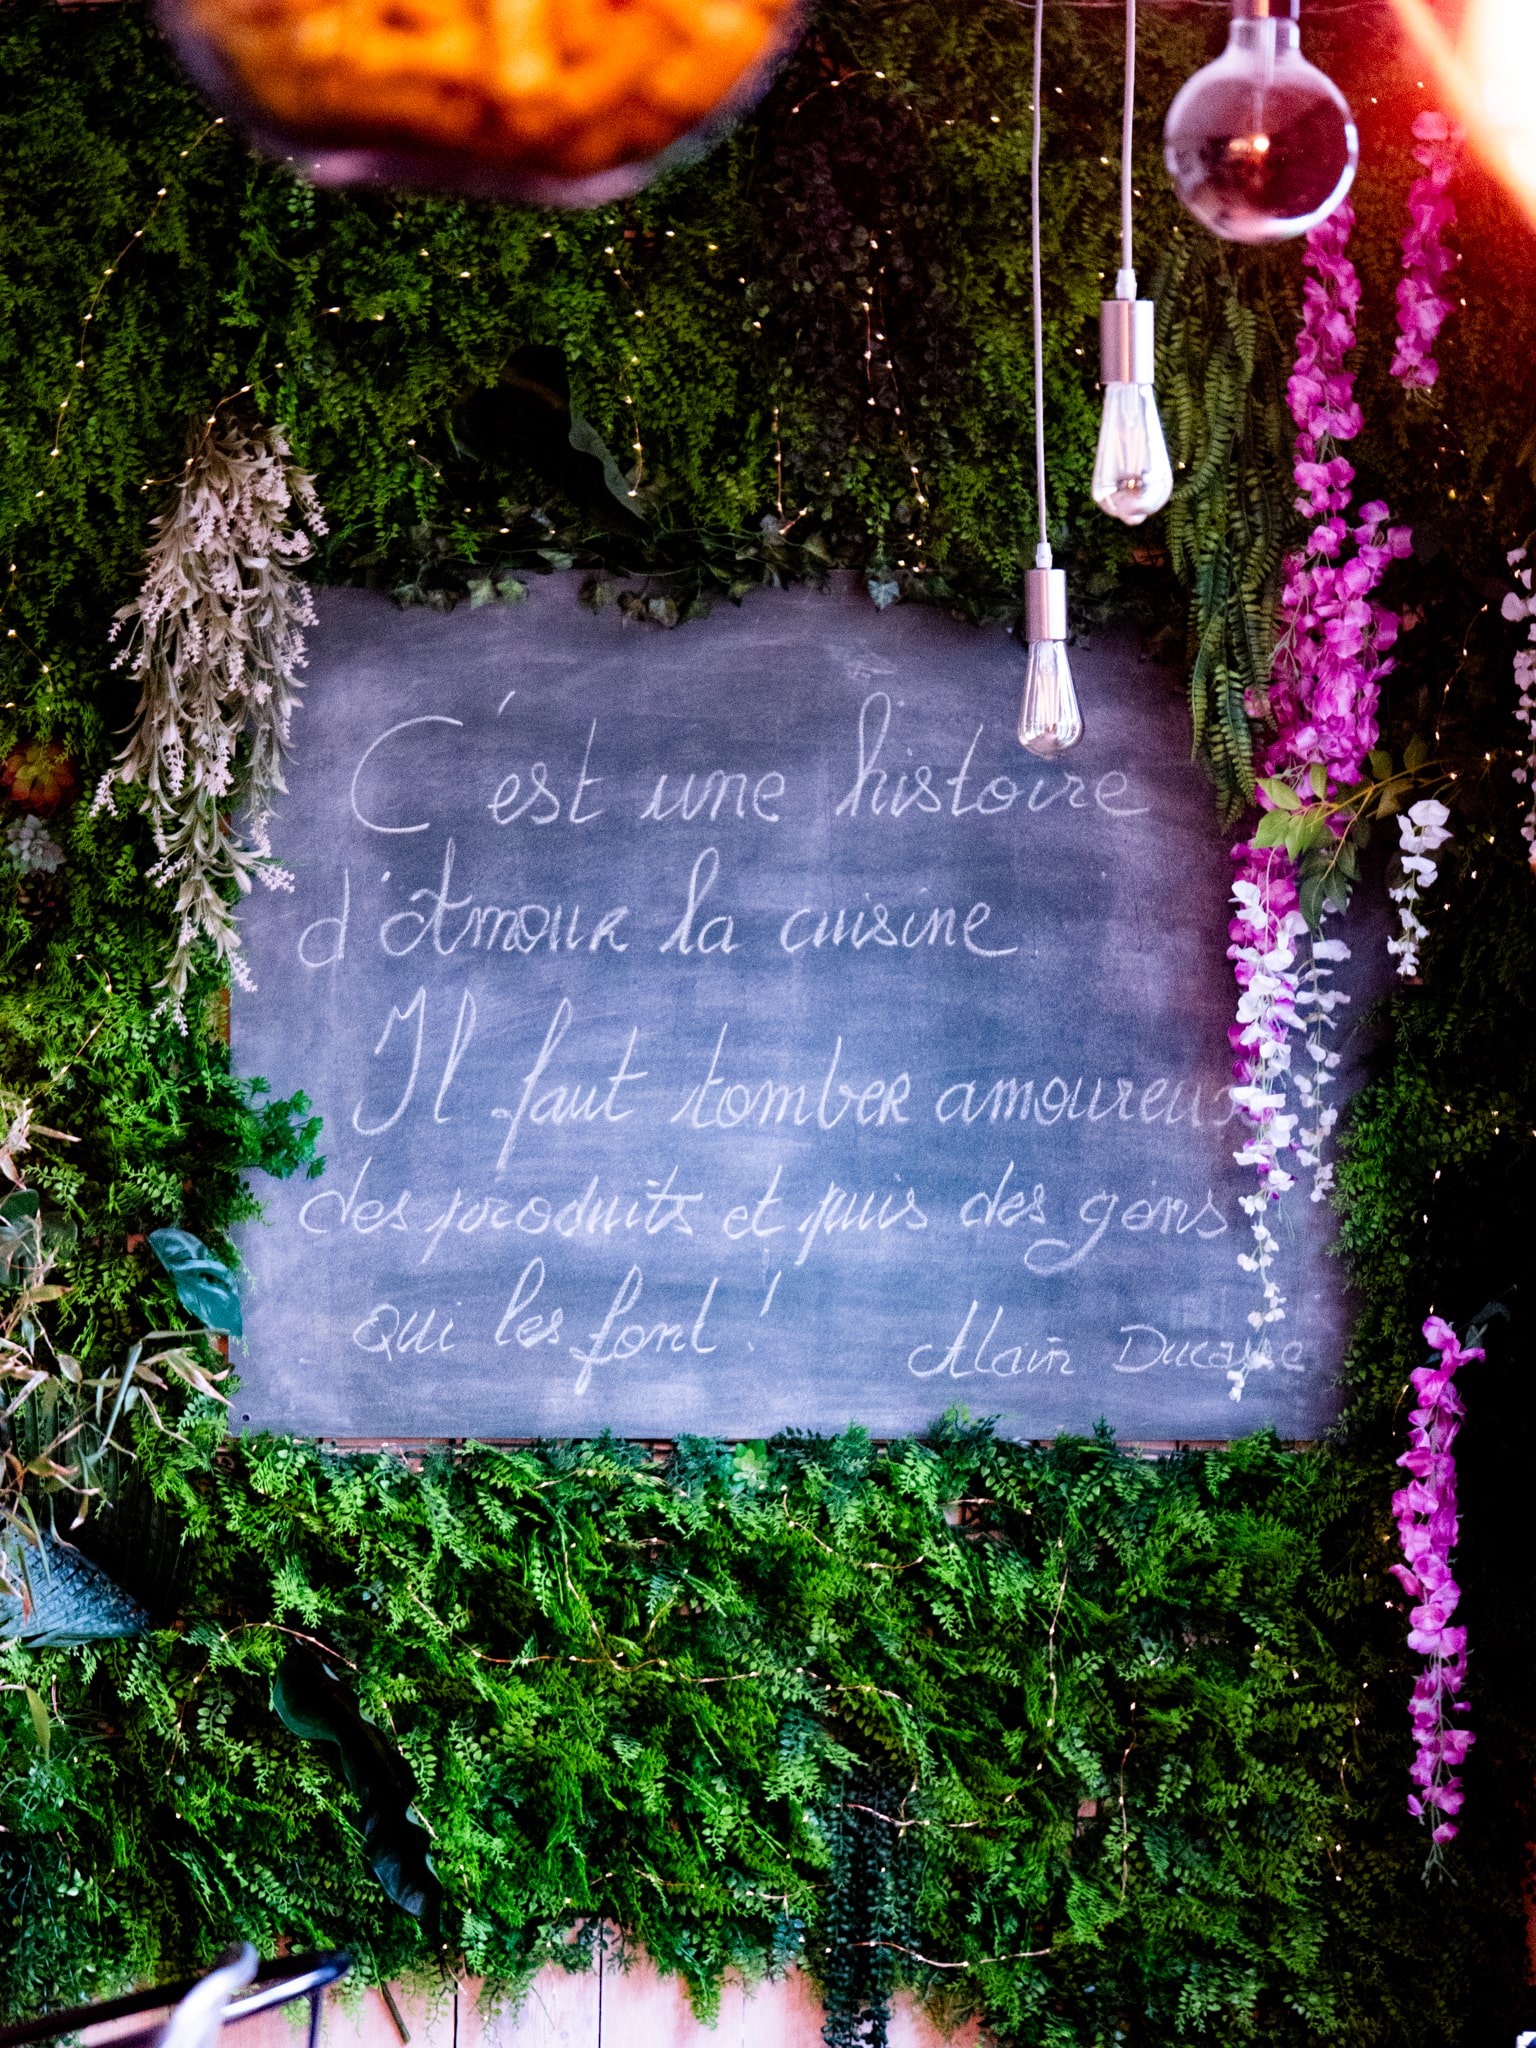 C'est une histoire
d'Amour la cuisine
Il faut tomber amoureux
des produits et puis des gens
qui les font !
Alain Ducasse